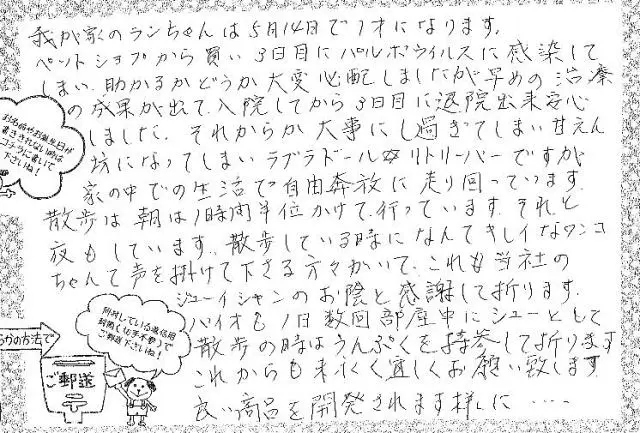 我が家のランちゃんは5月14日で1才になります。
ペットショップから買い3日目にパルボウイルスに感染して
しまい助かるかどうか大変心配しましたが早めの治療
の成果が出て、入院してから3日目に退院出来安心
しました。それからが大事にし過ぎてしまい甘えん
坊になってしまいラブラドール☆リトリーバーですが
家の中での生活で自由奔放に走り回っています。
散歩は朝は1時間半位かけて、行っています。それと
夜もしています。散歩している時になんてキレイなワンコ
ちゃんて声を掛けて下さる方々がいて、これも当社の
ジューイシャンのお陰と感謝して折ります。
バイオも1日数回部屋中にシューとして
散歩の時はうんぷくを持参して折ります
これからも末永く宜しくお願い致します
良い商品を開発されます様に ‥‥
お名前やお誕生日が
書ききれない時は
コチラに書いて
下さいね!
同封している返信用
封筒(切手不要)で
ご郵送下さいね!
らかの方法で
ご郵送